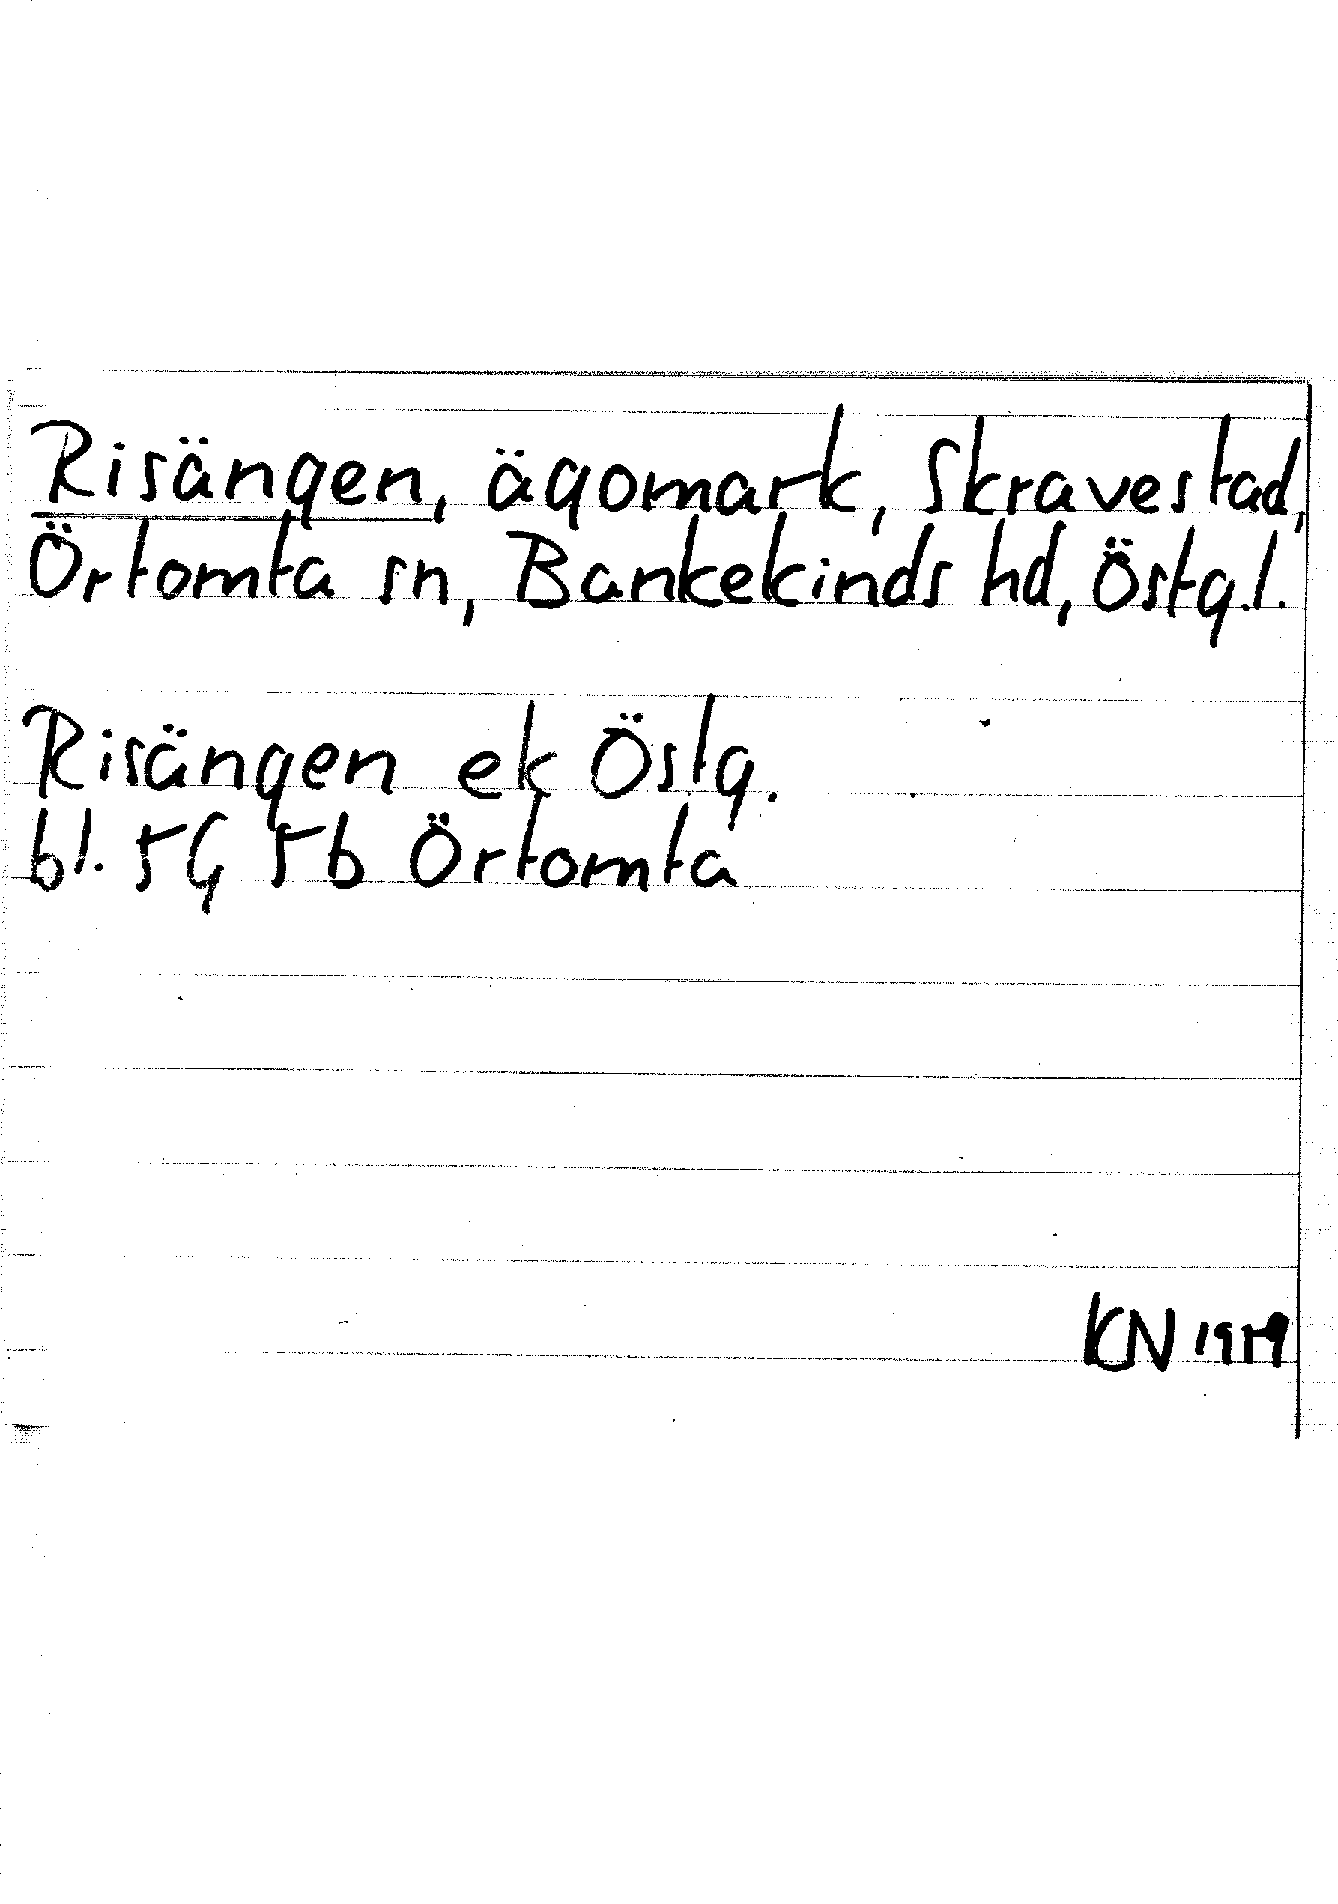 Risängen, ägomark, Skravestad,
Örtomta sn, Bankekinds hd, Östg.l.
Risängen ek Östg.
bl. 5G 5b Örtomta
KN 1959